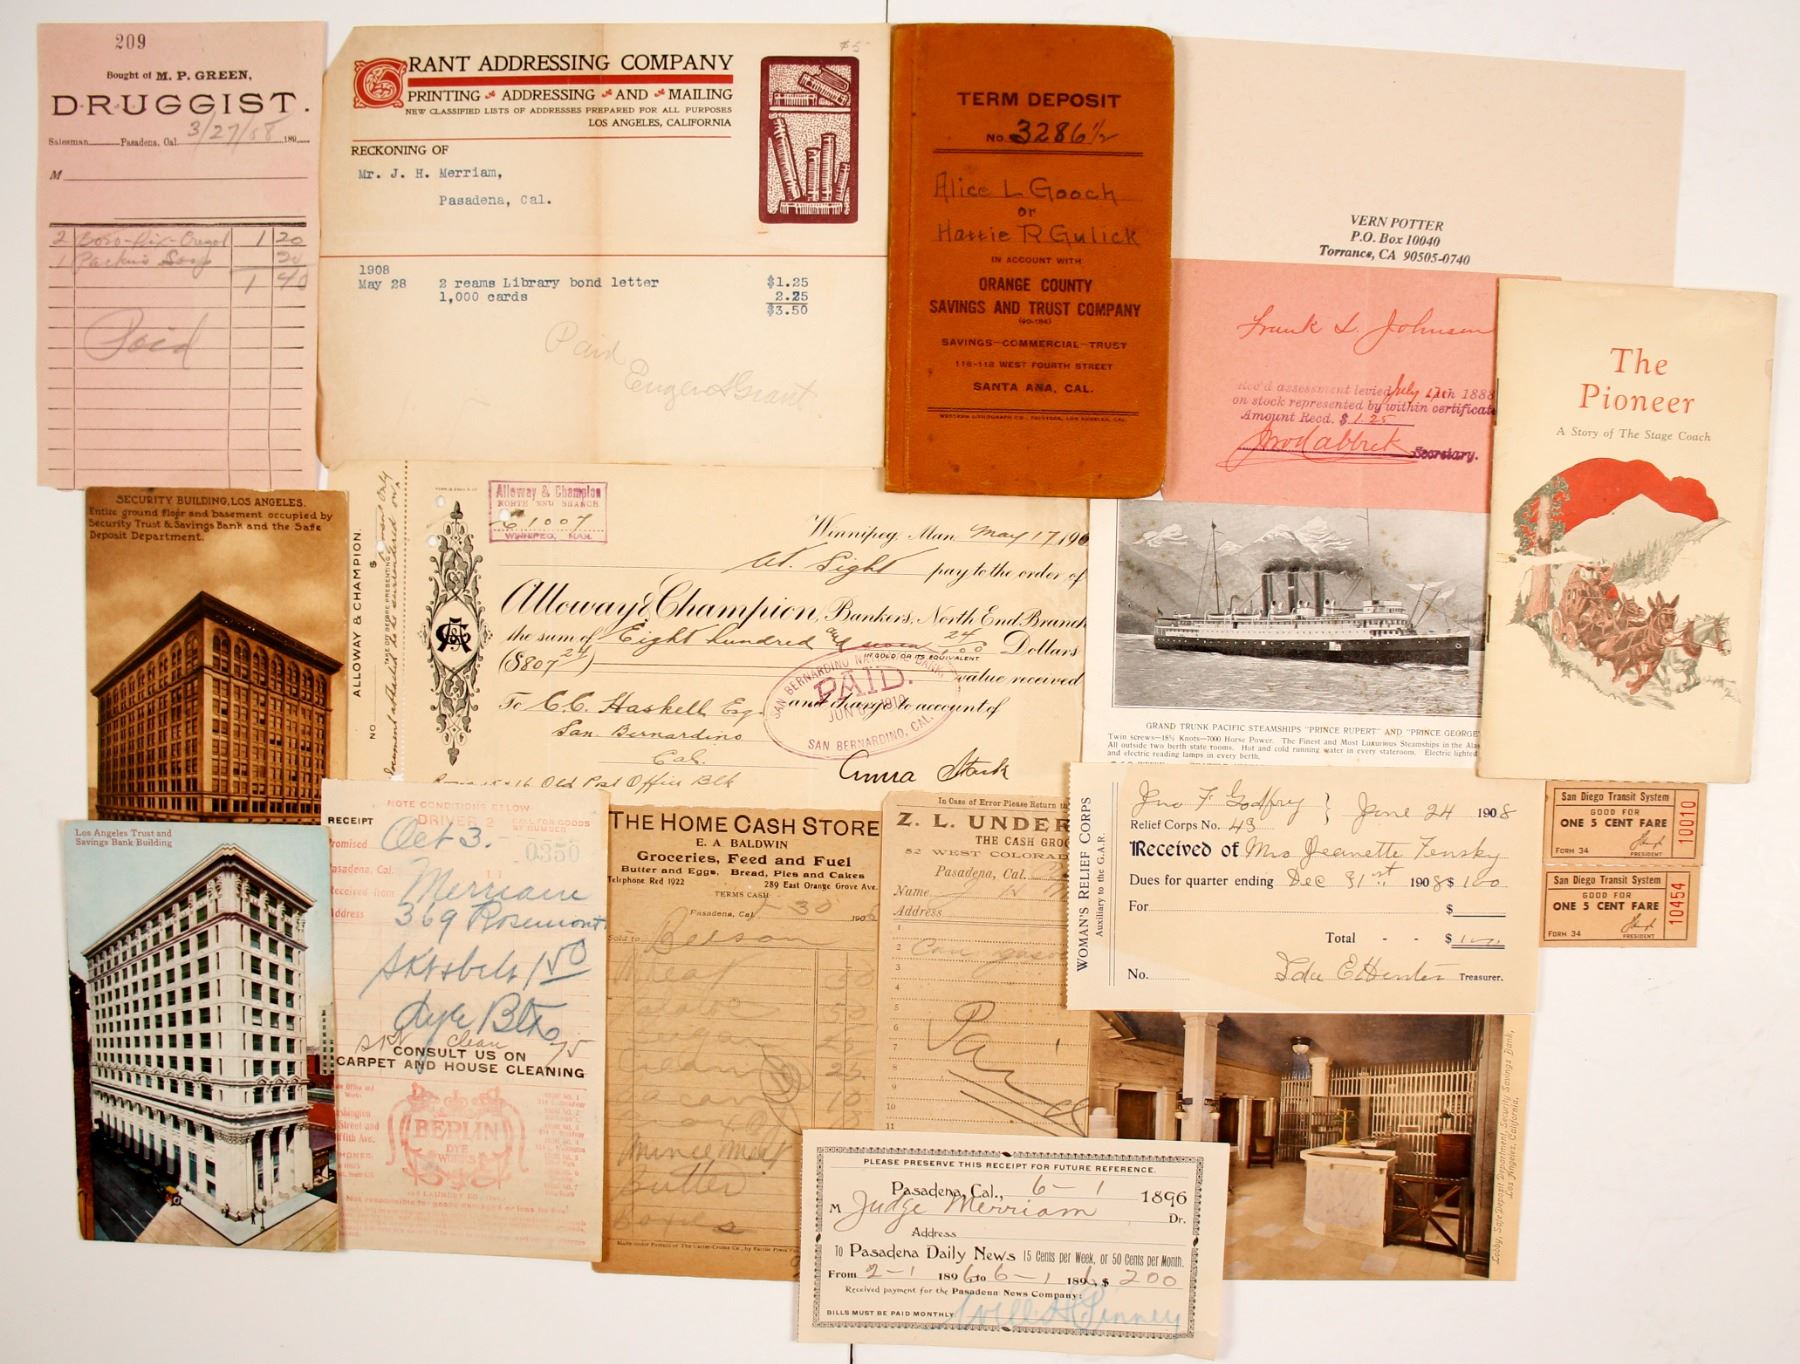 209
Bought of M. P. GREEN,
DRUGGIST.
Salesman Pasadena, Cal. 3/27/58 189
M
2 1 20
1 Soap 20
1 40
Paid
$5
GRANT ADDRESSING COMPANY
PRINTING ADDRESSING AND MAILING
NEW CLASSIFIED LISTS OF ADDRESSES PREPARED FOR ALL PURPOSES
LOS ANGELES, CALIFORNIA
RECKONING OF
Mr. J. H. Merriam,
Pasadena, Cal.
1908
May 28 2 reams Library bond letter $1.25
1,000 cards 2.25
$3.50
Paid
Eugene Grant
TERM DEPOSIT
No. 3286 1/2
Alice L Gooch
or
Hattie R Gulick
IN ACCOUNT WITH
ORANGE COUNTY
SAVINGS AND TRUST COMPANY
(90-184)
SAVINGS-COMMERCIAL-TRUST
116-118 WEST FOURTH STREET
SANTA ANA, CAL.
VERN POTTER
P.O. Box 10040
Torrance, CA 90505-0740
Frank L. Johnson
Rec'd assessment levied July 17th 1888
on stock represented by within certificat
Amount Recd. $ 1.25
Secretary.
The
Pioneer
A Story of The Stage Coach
SECURITY BUILDING, LOS ANGELES.
Entire ground floor and basement occupied by
Security Trust & Savings Bank and the Safe
Deposit Department.
ALLOWAY & CHAMPION.
NO $
Alloway & Champion
NORTH END BRANCH
61007
WINNIPEG, MAN.
Winnipeg, Man. May 17 190
At Sight pay to the order of
Alloway & Champion, Bankers, North End Branch
the sum of Eight hundred and seven 24/00 Dollars
($807 24) IN GOLD OR ITS EQUIVALENT value received
To C.C. Haskell Esq. and charge to account of
San Bernardino
Cal.
Anna Stark
16 Old Post Office Blk
SAN BERNARDINO NATIONAL BANK,
PAID.
JUN 6 1910
SAN BERNARDINO, CAL.
GRAND TRUNK PACIFIC STEAMSHIPS "PRINCE RUPERT" AND "PRINCE GEORGE"
Twin screws—18½ Knots—7000 Horse Power. The Finest and Most Luxurious Steamships in the Alas
All outside two berth state rooms. Hot and cold running water in every stateroom. Electric lighted
and electric reading lamps in every berth.
San Diego Transit System
GOOD FOR
ONE 5 CENT FARE
FORM 34
PRESIDENT
10010
San Diego Transit System
GOOD FOR
ONE 5 CENT FARE
FORM 34
PRESIDENT
10454
Los Angeles Trust and
Savings Bank Building
NOTE CONDITIONS BELOW
RECEIPT DRIVER 2 CALL FOR GOODS
BY NUMBER
0350
romised Oct 3.
asadena, Cal.
eceived from Merriam
ddress 369 Rosemont
Skt & belt 1 50
dye Blk
Skt clean 75
CONSULT US ON
CARPET AND HOUSE CLEANING
BERLIN
DYE
WORKS
Not responsible for goods
THE HOME CASH STORE
E. A. BALDWIN
Groceries, Feed and Fuel
Butter and Eggs, Bread, Pies and Cakes
Telephone Red 1922 289 East Orange Grove Ave.
TERMS CASH
Pasadena, Cal. 30 1906
Sold to
Meat 30
50
Cream 25
10
Mince Meat
Butter
In Case of Error Please Return
Z. L. UNDER
THE CASH GRO
52 WEST COLORAD
Pasadena, Cal.
Name J H
Address
1
2
3
4
5
6
7
8
9
10
11
Paid
WOMAN'S RELIEF CORPS
Auxiliary to the G.A.R.
Jno F. Godfry } June 24 1908
Relief Corps No. 43
Received of Mrs Jeanette Fensky
Dues for quarter ending Dec 31st 1908 $ 1.00
For $
Total - - $
No. Ida E. Hunter Treasurer.
PLEASE PRESERVE THIS RECEIPT FOR FUTURE REFERENCE.
Pasadena, Cal., 6-1 1896
M Judge Merriam Dr.
Address
To Pasadena Daily News 15 Cents per Week, or 50 Cents per Month.
From 2-1 1896 to 6-1 1896 $ 200
Received payment for the Pasadena News Company:
BILLS MUST BE PAID MONTHLY
Will A. Pinney
Lobby, Safe Deposit Department, Security Savings Bank,
Los Angeles, California.